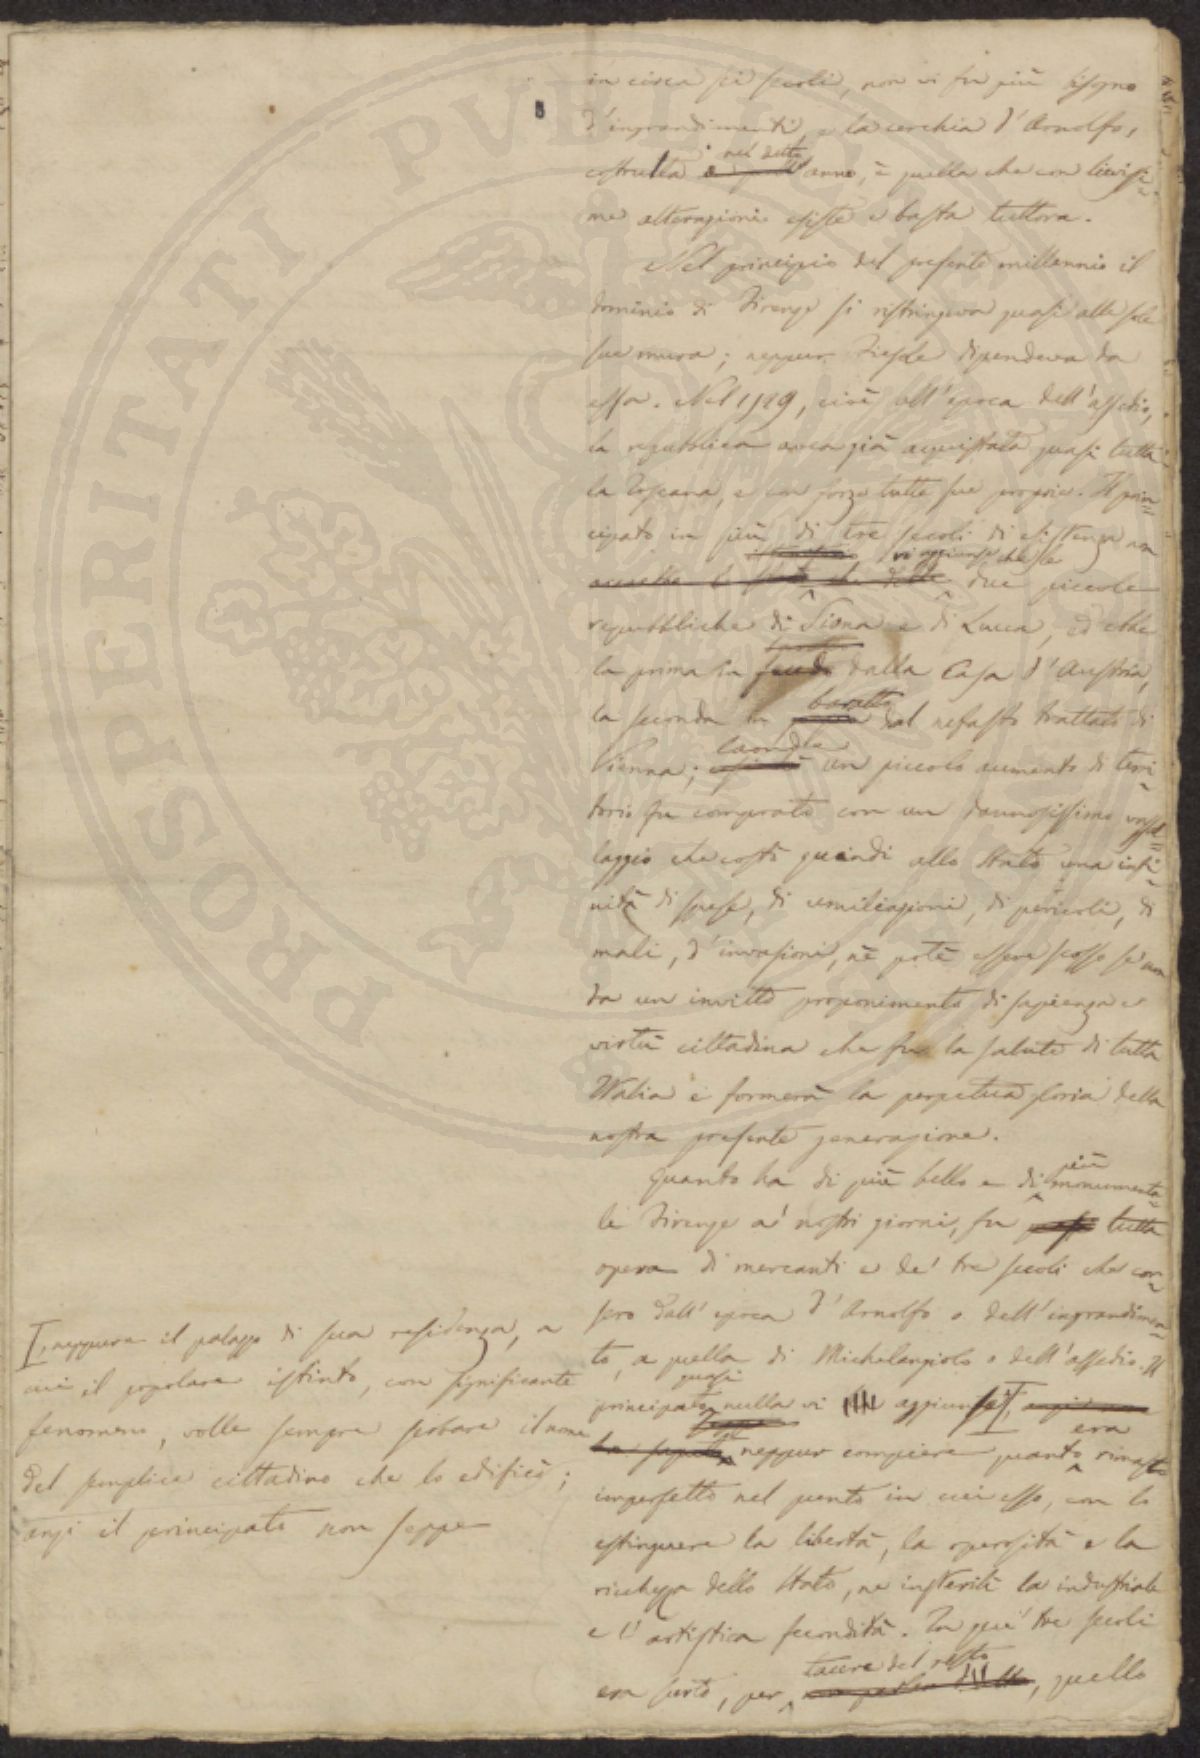 in circa sei secoli, non vi fu più bisogno
d'ingrandimenti, e la cerchia d'Arnolfo,
costrutta nel detto anno, è quella che con lievissi=
me alterazioni esiste e basta tuttora.
Nel principio del presente millennio il
dominio di Firenze si ristringeva quasi alle sole
sue mura; neppur Fiesole dipendeva da
essa. Nel 1529, cioè all'epoca dell'assedio,
la repubblica avea già acquistata quasi tutta
la Toscana, e con forze tutte sue proprie. Il prin=
cipato in più di tre secoli di esistenza non
vi aggiunse che le due piccole
repubbliche di Siena e di Lucca, ed ebbe
la prima in feudo dalla Casa d'Austria,
la seconda in baratto dal nefasto trattato di
Vienna; laonde un piccolo aumento di terri=
torio fu comprato con un dannosissimo vassal=
laggio che costò quindi allo Stato una infi=
nità di spese, di umiliazioni, di pericoli, di
mali, d'invasioni, nè potè essere scosso se non
da un invitto proponimento di sapienza e
virtù cittadina che fu la salute di tutta
Italia e formerà la perpetua gloria della
nostra presente generazione.
Quanto ha di più bello e di più monumenta=
le Firenze a' nostri giorni, fu tutta
opera di mercanti e de' tre secoli che cor=
sero dall'epoca d'Arnolfo o dell'ingrandimen=
to, a quella di Michelangiolo o dell'assedio. Il
principato quasi nulla vi aggiunse,
neppur compiere quanto era rimasto
imperfetto nel punto in cui esso, con lo
estinguere la libertà, la operosità e la
ricchezza dello Stato, ne insterilì la industriale
e l'artistica fecondità. In que' tre secoli
era surto, per tacere del resto, quello
neppure il palazzo di sua residenza, a
cui il popolare istinto, con significante
fenomeno, volle sempre serbare il nome
del semplice cittadino che lo edificò;
anzi il principato non seppe
PROSPERITATI PVBLICAE